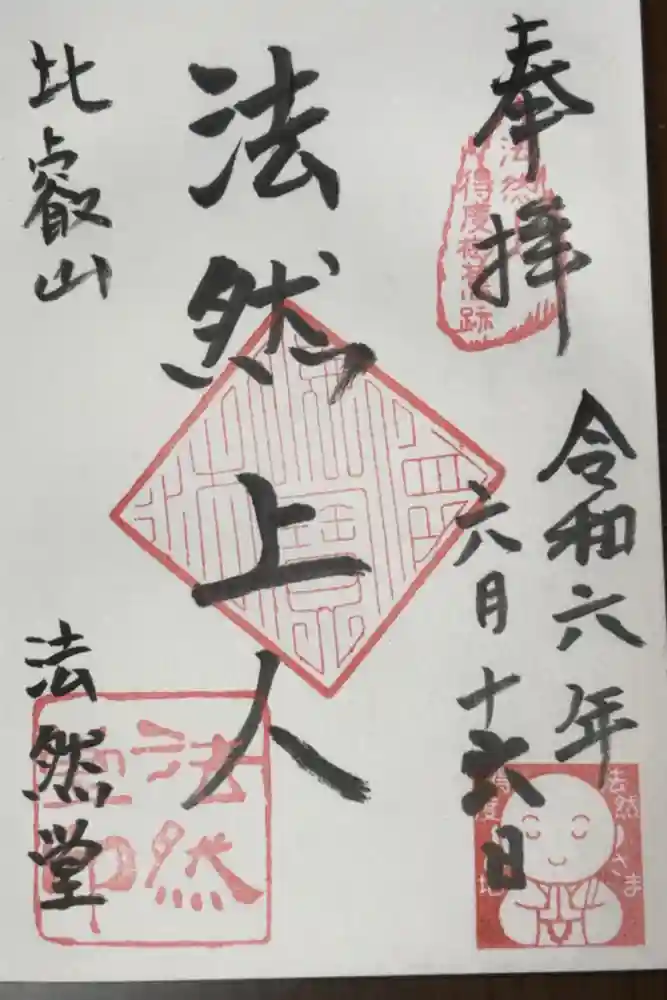 奉拝
法然
得度
跡
令和六年
六月十六日
法然さま
得度
地
法然上人
比叡山
法然堂
法然